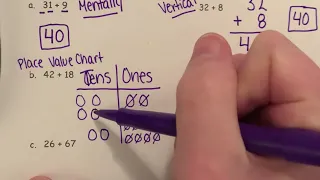 a. 31 + 9 Mentally
Vertical 32 + 8
32
+ 8
40
40
4
Place Value Chart
b. 42 + 18
Tens Ones
c. 26 + 67